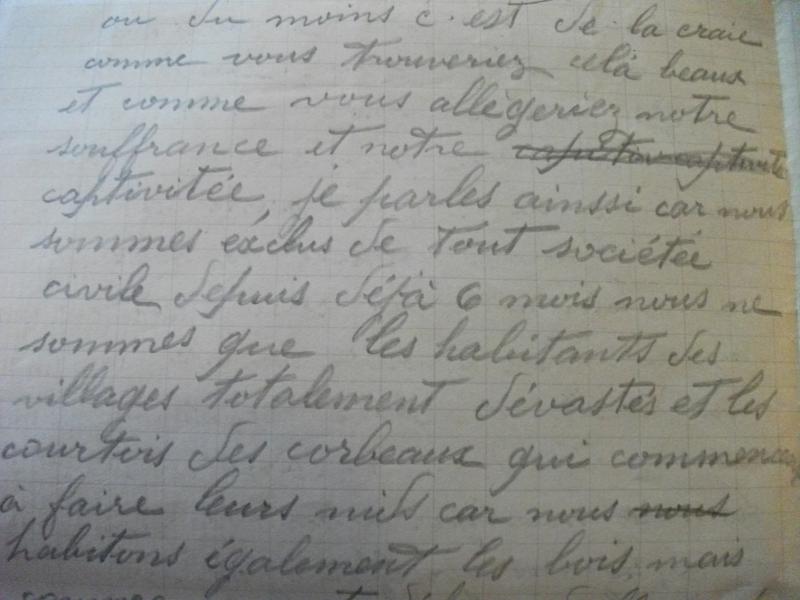 ou du moins c'est de la craie
comme vous trouveriez celà beaux
et comme vous allègeriez notre
souffrance et notre
captivitée, je parles ainssi car nous
sommes éxclus de tout sociétée
civile depuis déjà 6 mois nous ne
sommes que les habitants des
villages totalement dévastés et les
courtois des corbeaux qui
à faire leurs nids car nous nous
habitons également les bois mais